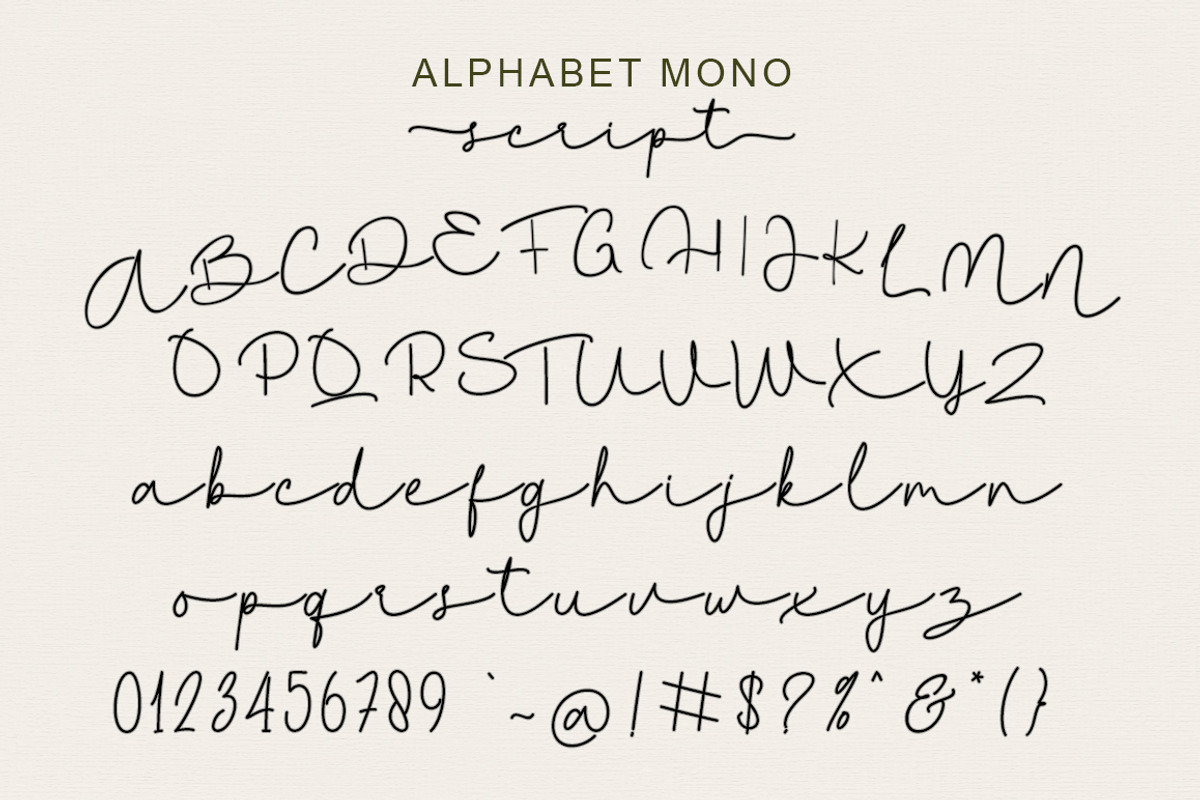 ALPHABET MONO
script
ABCDEFGHIJKLMN
OPQRSTUVWXYZ
abcdefghijklmn
opqrstuvwxyz
0123456789 ` ~ @ ! # $ ? % ^ & * ( }